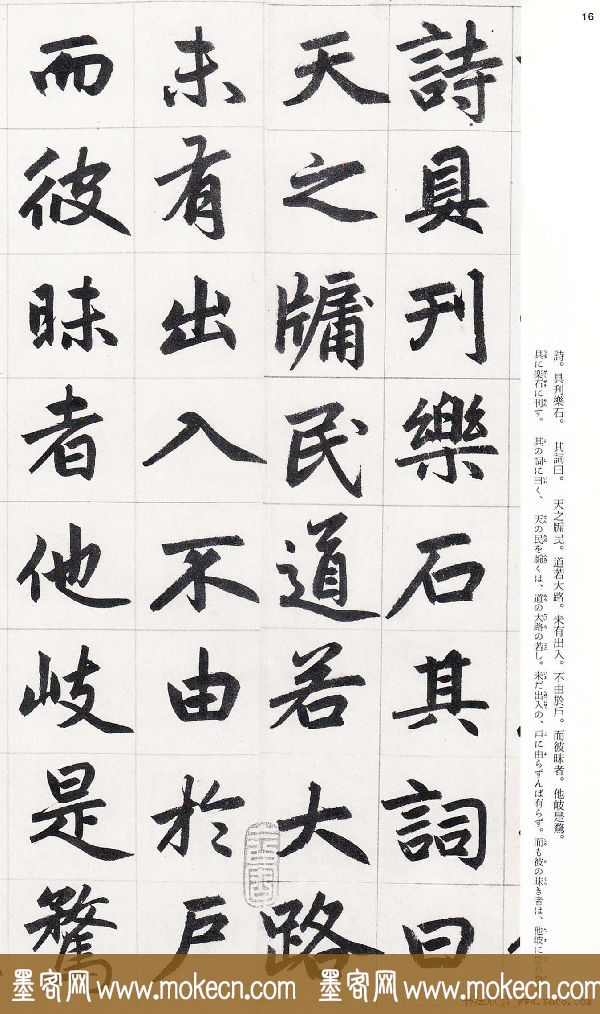 16
詩具刊樂石其詞曰
天之牖民道若大路
未有出入不由於戶
而彼昧者他岐是騖
詩。具刊樂石。 其詞曰。 天之牖民。道若大路。未有出入。不由於戶。而彼昧者。他岐是騖。
具に楽石に刊す。 其の詞に曰く、 天の民を牖くは、道の大路の若し。未だ出入の、戸に由らずんば有らず。而も彼の昧き者は、他岐に
墨客网 www.mokecn.com 墨客网 www.mokecn.com